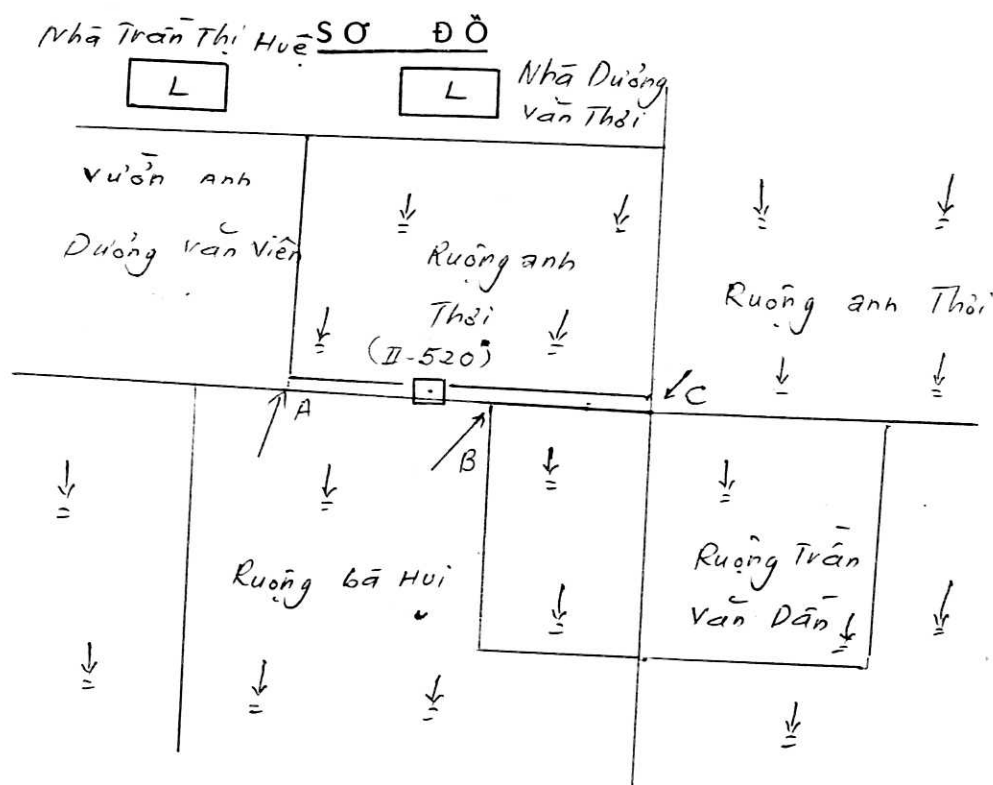 SƠ ĐỒ
Nhà Trần Thị Huệ
L
L
Nhà Dưỡng
Văn Thời
Vườn anh
Dưỡng Văn Viên
Ruộng anh
Thời
(II-520)
Ruộng anh Thời
A
B
C
Ruộng bà Hui
Ruộng Trần
Văn Dần